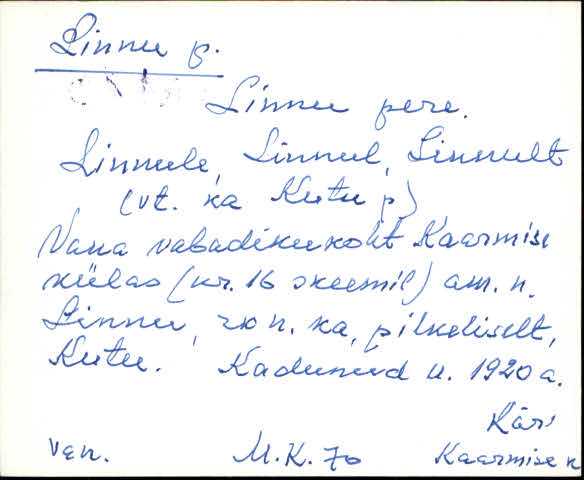 Linnu p.
Linnu pere.
Linnule, Linnul, Linnult
(vt. ka Kutu p)
Vana vabadikukoht Kaarmise
külas (nr. 16 skeemil) am. n.
Linnu, ro n. ka, pilkeliselt,
Kutu. Kadunud u. 1920 a.
Kär
van. M.K. 70 Kaarmise k